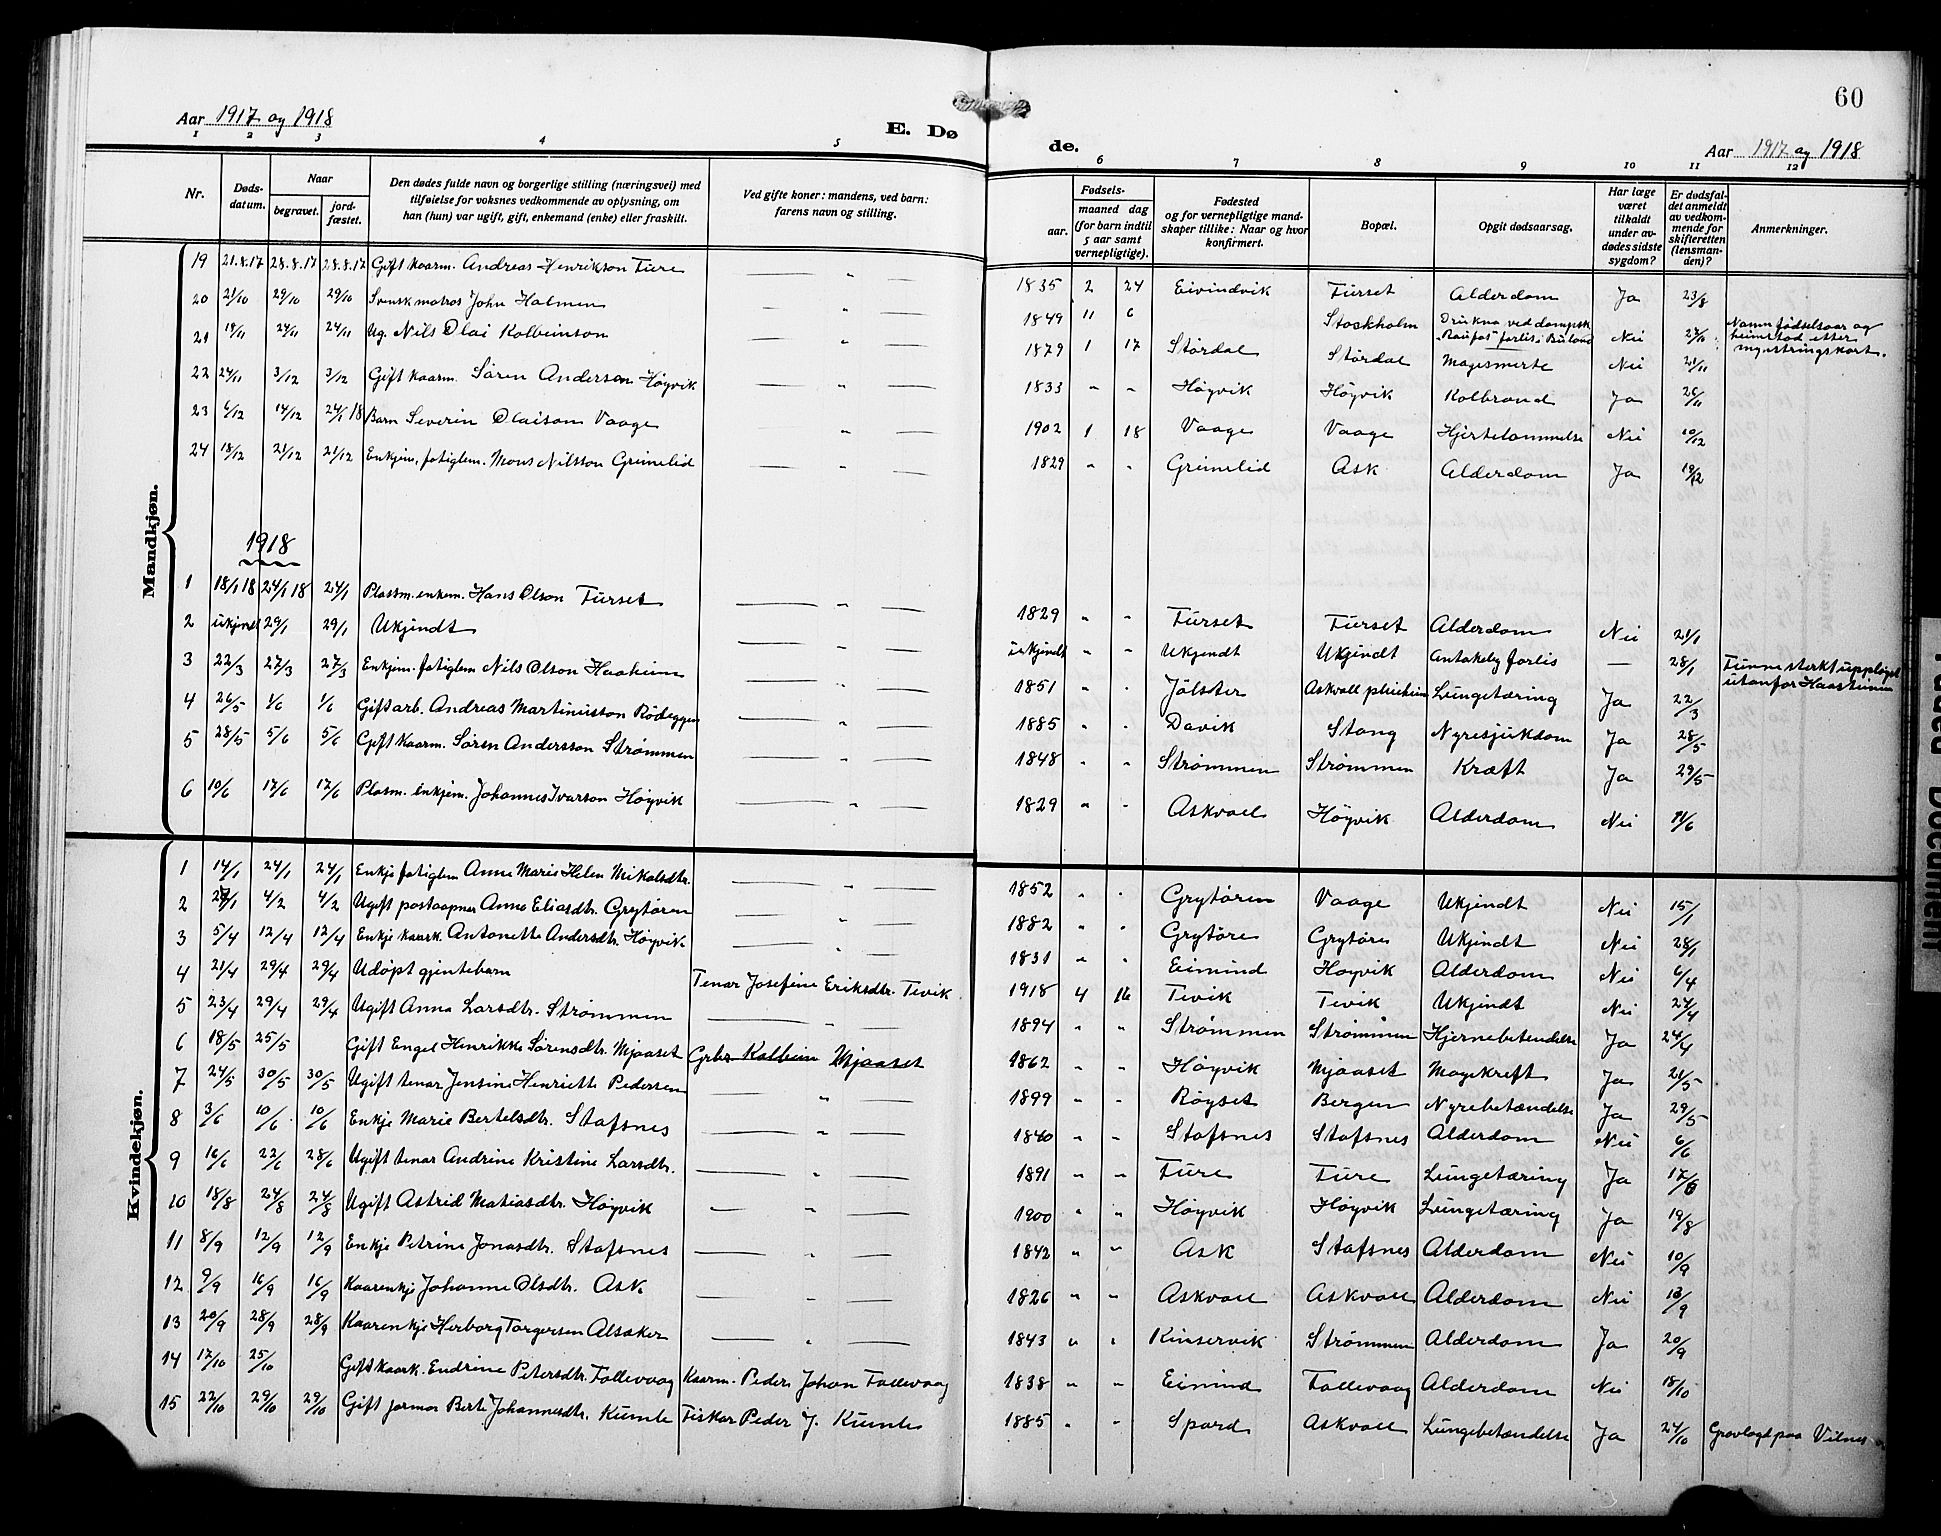 60
Aar 1917 og 1918
E. Dø
de.
Aar 1917 og 1918
1 2 3 4 5 6 7 8 9 10 11 12
Nr.
Døds-
datum.
Naar
begravet.
jord-
fæstet.
Den dødes fulde navn og borgerlige stilling (næringsvei) med
tilføielse for voksnes vedkommende av oplysning, om
han (hun) var ugift, gift, enkemand (enke) eller fraskilt.
Ved gifte koner: mandens, ved barn:
farens navn og stilling.
Fødsels-
aar. maaned dag
(for barn indtil
5 aar samt
vernepligtige).
Fødested
og for vernepligtige mand-
skaper tillike: Naar og hvor
konfirmert.
Bopæl.
Opgit dødsaarsag.
Har læge
været
tilkaldt
under av-
dødes sidste
sygdom?
Er dødsfal-
det anmeldt
av vedkom-
mende for
skifteretten
(lensman-
den)?
Anmerkninger.
Mandkjøn.
19 21.8.17 28.8.17 28.8.17 Gift kaarm. Andreas Henrikson Fure — " — 1835 2 24 Eivindvik Furset Alderdom Ja 23/8
20 21/10 29/10 29/10 Svensk matros John Holmen — " — 1849 11 6 Stockholm Drukna ved dampsk. "Raufos" forlis i Buland Nei Namn fødselsaar og heimstad etter mynstringskort.
21 19/11 24/11 24/11 Ug. Nils Olai Kolbeinson — " — 1879 1 17 Stórdal Stórdal Magesmerte Nei 21/11
22 24/11 3/12 3/12 Gift kaarm. Søren Anderson Høyvik — " — 1833 " " Høyvik Høyvik Kolbrand Ja 26/11
23 6/12 14/12 24/1 18 Barn Severin Olaison Vaage — " — 1902 1 18 Vaage Vaage Hjertelammelse Nei 10/12
24 18/12 21/12 21/12 Enkjem. fatiglem. Mons Nilsson Grimelid — " — 1829 " " Grimelid Ask Alderdom Ja 19/12
1918
1 18/1 18 24/1 18 24/1 Plassm. enkem. Hans Olson Furset — " — 1829 " " Furset Furset Alderdom Nei 21/1
2 ukjendt 29/1 29/1 Ukjendt — " — ukjendt " " Ukjendt Ukjendt Antakeleg forlis — 28/1 Funne sterkt uppløyst utanfor
3 22/3 27/3 27/3 Enkjem. fatiglem Nils Olson Haaheim — " — 1851 " " Jølster Askvoll pleieheim Lungetæring Ja 22/3
4 26/5 1/6 1/6 Gift arb. Andreas Martinusson Rødeggen — " — 1885 " " Davik Stang Nyresjukdom Ja 28/5
5 28/5 5/6 5/6 Gift kaarm. Søren Andersson Strømmen — " — 1848 " " Strømmen Strømmen Kræft Ja 29/5
6 10/6 17/6 17/6 Plasm. enkjem. Johannes Ivarson Høyvik — " — 1829 " " Askvoll Høyvik Alderdom Nei 11/6
Kvindekjøn.
1 14/1 24/1 24/1 Enkje fatiglem Anne Marie Helen Mikalsdtr. — " — 1852 " " Grytøren Vaage Ukjendt Nei 15/1
2 27/1 4/2 4/2 Ugift postaapner Anne Eliasdtr. Grytøren — " — 1882 " " Grytøre Grytøre Ukjendt Nei 28/1
3 5/4 12/4 12/4 Enkje kaark. Antonette Andersdtr. Høyvik — " — 1831 " " Eimind Høyvik Alderdom Nei 6/4
4 21/4 29/4 29/4 Udøpt gjentebarn Tenar Josefine Eriksdtr. Tevik 1918 4 16 Tevik Tevik Ukjendt Nei 24/4
5 23/4 29/4 29/4 Ugift Anna Larsdtr. Strømmen — " — 1894 " " Strømmen Strømmen Hjernebetendelse Ja 24/4
6 18/5 25/5 Gift Engel Henrikke Sørensdtr. Mjaaset Grbr. Kolbein Mjaaset 1862 " " Høyvik Mjaaset Magekreft Ja 21/5
7 24/5 30/5 30/5 Ugift tenar Jensine Henriette Pedersen — " — 1899 " " Røyset Bergen Nyrebetændelse Ja 29/5
8 3/6 10/6 10/6 Enkje Marie Bertelsdtr. Stafsnes — " — 1840 " " Stafsnes Stafsnes Alderdom Nei 6/6
9 16/6 22/6 28/6 Ugift tenar Andrine Kristine Larsdtr. — " — 1891 " " Fure Fure Lungetæring Ja 17/6
10 18/8 24/8 24/8 Ugift Astrid Matiasdtr. Høyvik — " — 1900 " " Høyvik Høyvik Lungetæring Ja 19/8
11 8/9 12/9 12/9 Enkje Petrine Jonasdtr. Stafsnes — " — 1842 " " Ask Stafsnes Alderdom Nei 10/9
12 9/9 16/9 16/9 Kaarenkje Johanne Olsdtr. Ask — " — 1826 " " Askvoll Askvoll Alderdom Nei 13/9
13 20/9 28/9 28/9 Kaarenkje Herborg Torgersen Alsaker — " — 1843 " " Kinservik Strømmen Alderdom Ja 20/9
14 17/10 25/10 Gift kaark. Endrine Petersdtr. Follevaag Kaarm. Peder Johan Follevaag 1838 " " Eimind Follevaag Alderdom Nei 18/10
15 22/10 29/10 29/10 Gift jormor Berte Johannesdtr. Kumle Fiskar Peder J. Kumle 1885 " " Spord Askvoll Lungebetændelse Ja 24/10 Gravlagd paa Vilnes